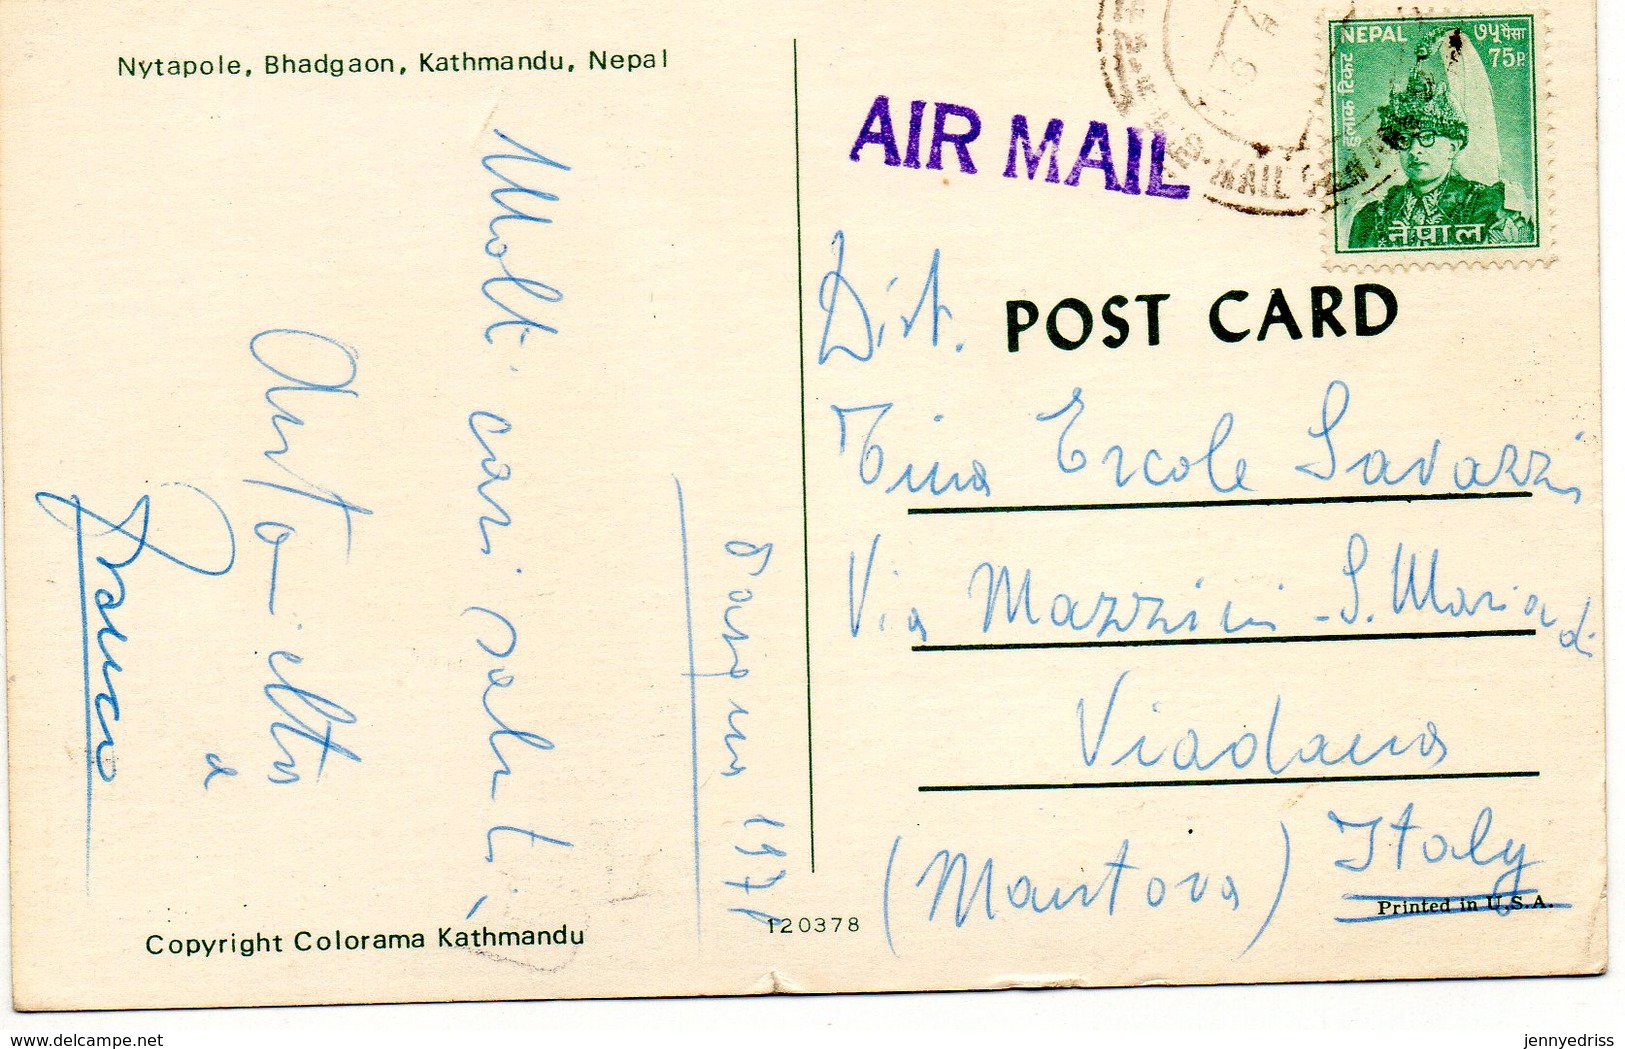 Nytapole, Bhadgaon, Kathmandu, Nepal
Pasqua 1971
Molti cari saluti,
a
Copyright Colorama Kathmandu
120378
AIR MAIL
MAIL
NEPAL ७५ पैसा
75P.
हुलाक टिकट
नेपाल
POST CARD
Dist.
Tina Ercole Savazzi
Via Mazzini - S. Maria di
Viadana
(Mantova) Italy
Printed in U.S.A.
www.delcampe.net
jennyedriss